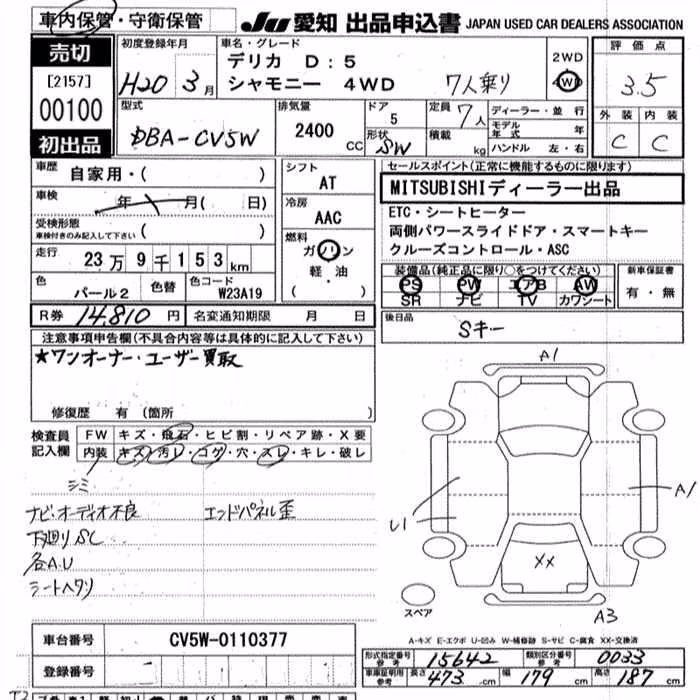 車内保管・守衛保管
JU 愛知 出品申込書 JAPAN USED CAR DEALERS ASSOCIATION
売切
[2157]
00100
初出品
初度登録年月
H20 3月
車名・グレード
デリカ D:5
シャモニー 4WD 7人乗り
2WD
4WD
評価点
3.5
外装 内装
C C
型式
DBA-CV5W
排気量
2400 CC
ドア
5
形状
SW
定員 7人
積載 kg
ディーラー・並行
モデル年式 年
ハンドル 左・右
車歴
自家用・( )
車検 年 月( 日)
受検形態
車検付きのみ記入して下さい ( )
走行
23万9千153km
色
パール2
色替
色コード
W23A19
シフト
AT
冷房
AAC
燃料
ガソリン
軽・油
( )
セールスポイント(正常に機能するものに限ります)
MITSUBISHIディーラー出品
ETC・シートヒーター
両側パワースライドドア・スマートキー
クルーズコントロール・ASC
装備品(純正品に限り○をつけてください)
PS PW エアB AW
SR ナビ TV カワシート
新車保証書
有・無
R券 14,810円 名変通知期限 月 日
後日品
Sキー
注意事項申告欄(不具合内容等は具体的に記入して下さい)
★ワンオーナー・ユーザー買取
修復歴 有 (箇所 )
検査員
記入欄
FW キズ・飛石・ヒビ割・リペア跡・X要
内装 キズ・汚レ・コゲ・穴・スレ・キレ・破レ
シミ
ナビ・オーディオ不良 エンドパネル歪
下廻りSC
各A.U
シートヘタリ
A1
U1
A1
XX
A3
スペア
A-キズ E-エクボ U-凹み W-補修跡 S-サビ C-腐食 XX-交換済
車台番号 CV5W-0110377
登録番号
形式指定番号 参考 15642 類別区分番号 参考 0033
車庫証明用 参考 長さ 473 cm 幅 179 cm 高さ 187 cm